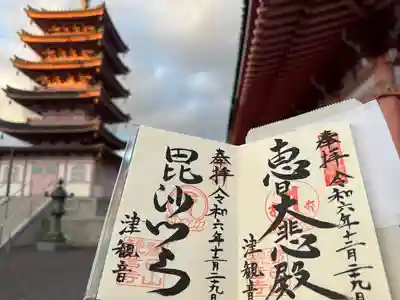 奉拝
令和六年十二月二十九日
恵日大悲殿
津観音
奉拝
令和六年十二月二十九日
毘沙門天
津観音